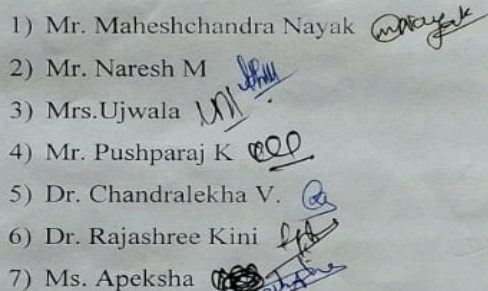 1) Mr. Maheshchandra Nayak
2) Mr. Naresh M
3) Mrs.Ujwala
4) Mr. Pushparaj K
5) Dr. Chandralekha V.
6) Dr. Rajashree Kini
7) Ms. Apeksha